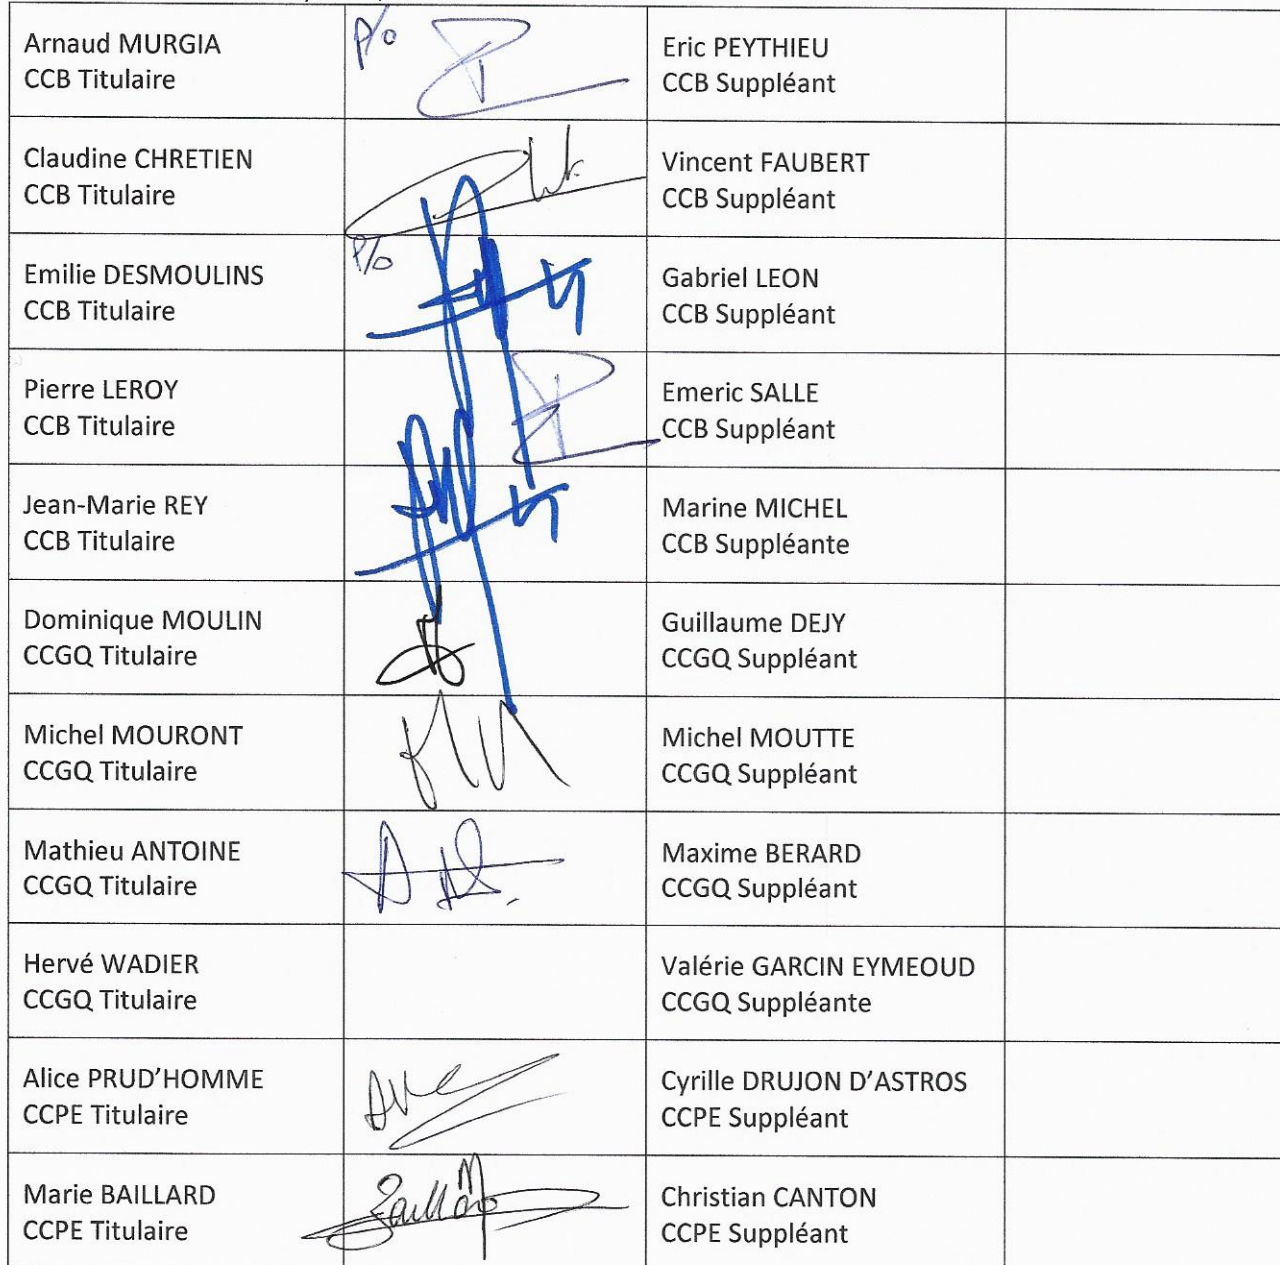 Arnaud MURGIA
CCB Titulaire
P/o
Eric PEYTHIEU
CCB Suppléant
Claudine CHRETIEN
CCB Titulaire
Vincent FAUBERT
CCB Suppléant
Emilie DESMOULINS
CCB Titulaire
P/o
Gabriel LEON
CCB Suppléant
Pierre LEROY
CCB Titulaire
Emeric SALLE
CCB Suppléant
Jean-Marie REY
CCB Titulaire
Marine MICHEL
CCB Suppléante
Dominique MOULIN
CCGQ Titulaire
Guillaume DEJY
CCGQ Suppléant
Michel MOURONT
CCGQ Titulaire
Michel MOUTTE
CCGQ Suppléant
Mathieu ANTOINE
CCGQ Titulaire
Maxime BERARD
CCGQ Suppléant
Hervé WADIER
CCGQ Titulaire
Valérie GARCIN EYMEOUD
CCGQ Suppléante
Alice PRUD’HOMME
CCPE Titulaire
Cyrille DRUJON D’ASTROS
CCPE Suppléant
Marie BAILLARD
CCPE Titulaire
Christian CANTON
CCPE Suppléant